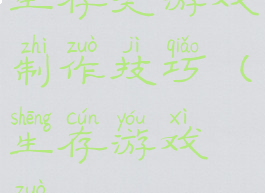 生存类游戏
zhì zuò jì qiǎo
制作技巧（
shēng cún yóu xì
生存游戏
zuò